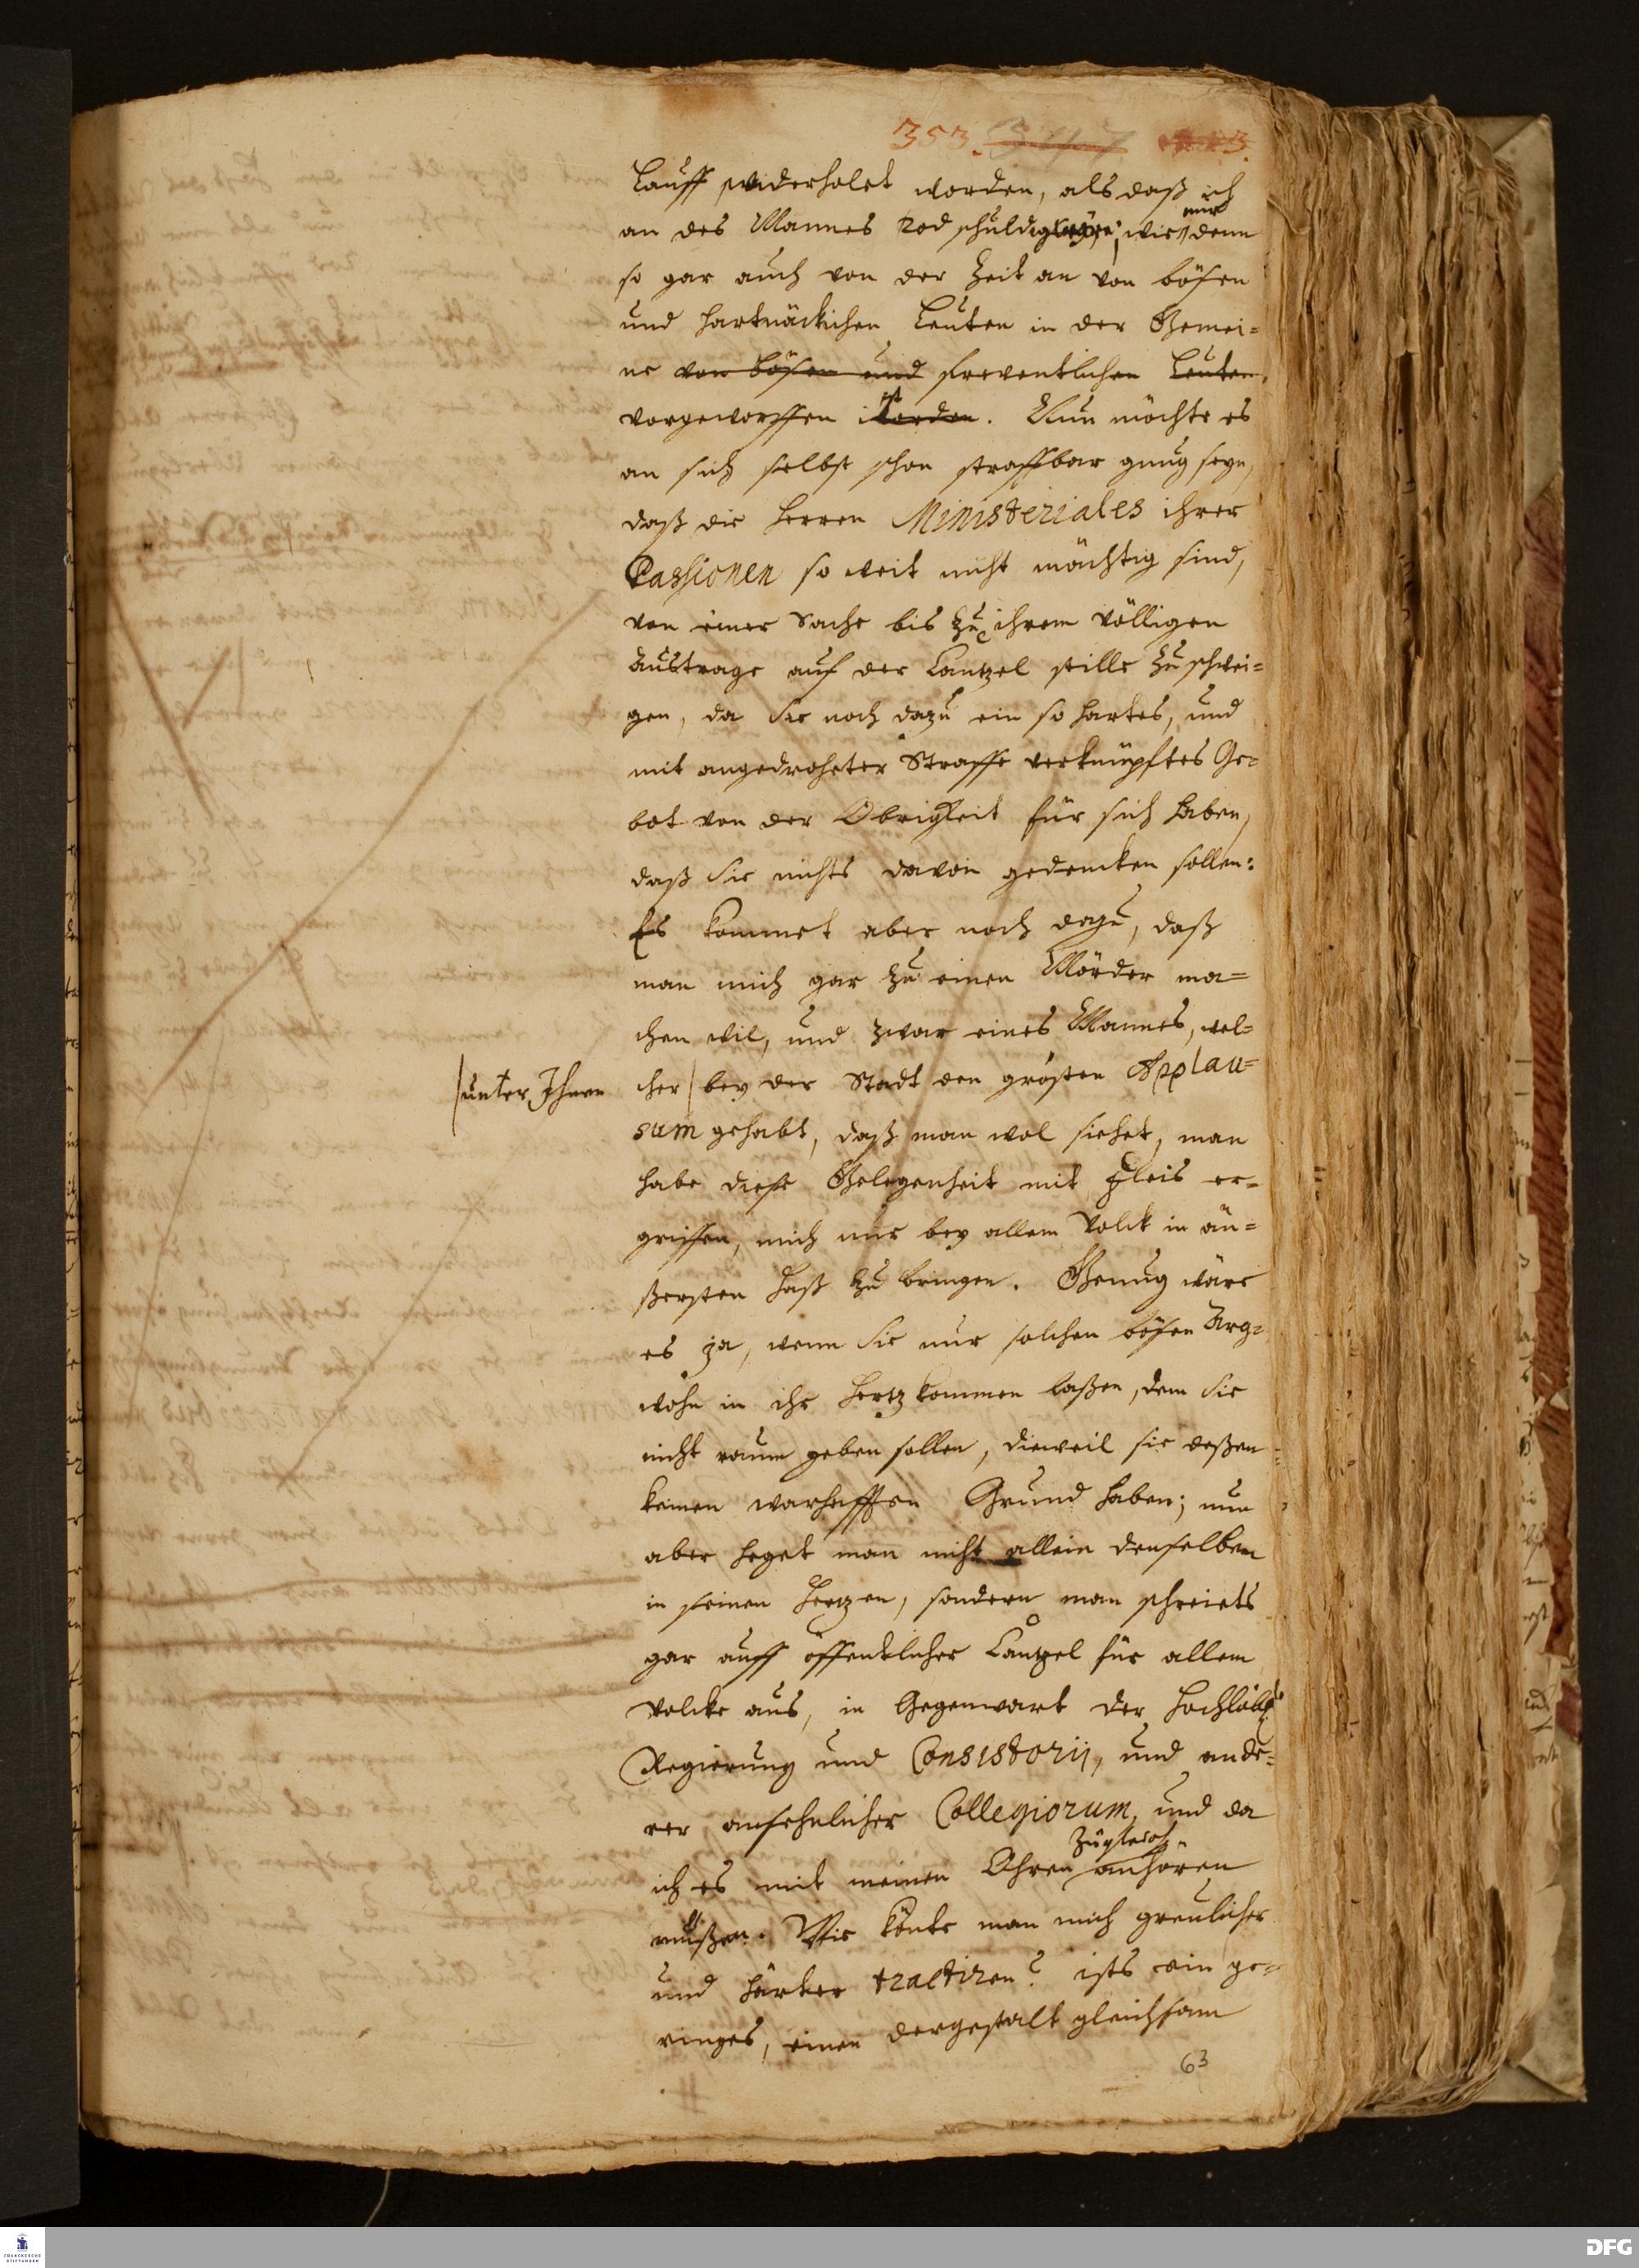 353. 347
Lauff widerholet worden, als daß ich
an des Mannes Tod schuldig wäre, wie mir denn
so gar auch von der Zeit an von bösen
und hartnäckichen Leuten in der Gemei-
ne von bösen und freventlichen Leuten
vorgeworffen ist worden. Nun möchte es
an sich selbst schon straffbar gnug seyn,
daß die Herren Ministeriales ihrer
Passionen so weit nicht mächtig sind,
von einer Sache bis zu ihrem völligen
Austrage auf der Cantzel stille zu schwei-
gen, da Sie noch dazu ein so hartes, und
mit angedroheter Straffe verknüpftes Ge-
bot von der Obrigkeit für sich haben,
daß Sie nichts davon gedencken sollen:
Es kommet aber noch dazu, daß
man mich gar zu einen Mörder ma-
chen wil, und zwar eines Mannes, wel-
cher | bey der Stadt den grösten Applau-
|unter Ihnen
sum gehabt, daß man wol siehet, man
habe diese Gelegenheit mit Fleis er-
griffen, mich nur bey allem Volck in äu-
ßersten Haß zu bringen. Genug wäre
es ja, wenn Sie nur solchen bösen Arg-
wohn in ihr Hertz kommen laßen, dem Sie
nicht raum geben sollen, dieweil sie deßen
keinen warhafften Grund haben; nun
aber heget man nicht allein denselben
in seinen Hertzen, sondern man schreiets
gar auff öffentlicher Cantzel für allem
Volcke aus, in Gegenwart der Hochlöbl.
Regierung und Consistorij, und ande-
rer ansehnlicher Collegiorum, und da
ich es mit meinen Ohren zugleich anhören
müßen. Wie könte man mich greulicher
und härter tractiren? ists ein ge-
ringes, einen dergestalt gleichsam
63
FRANCKESCHE
STIFTUNGEN
DFG